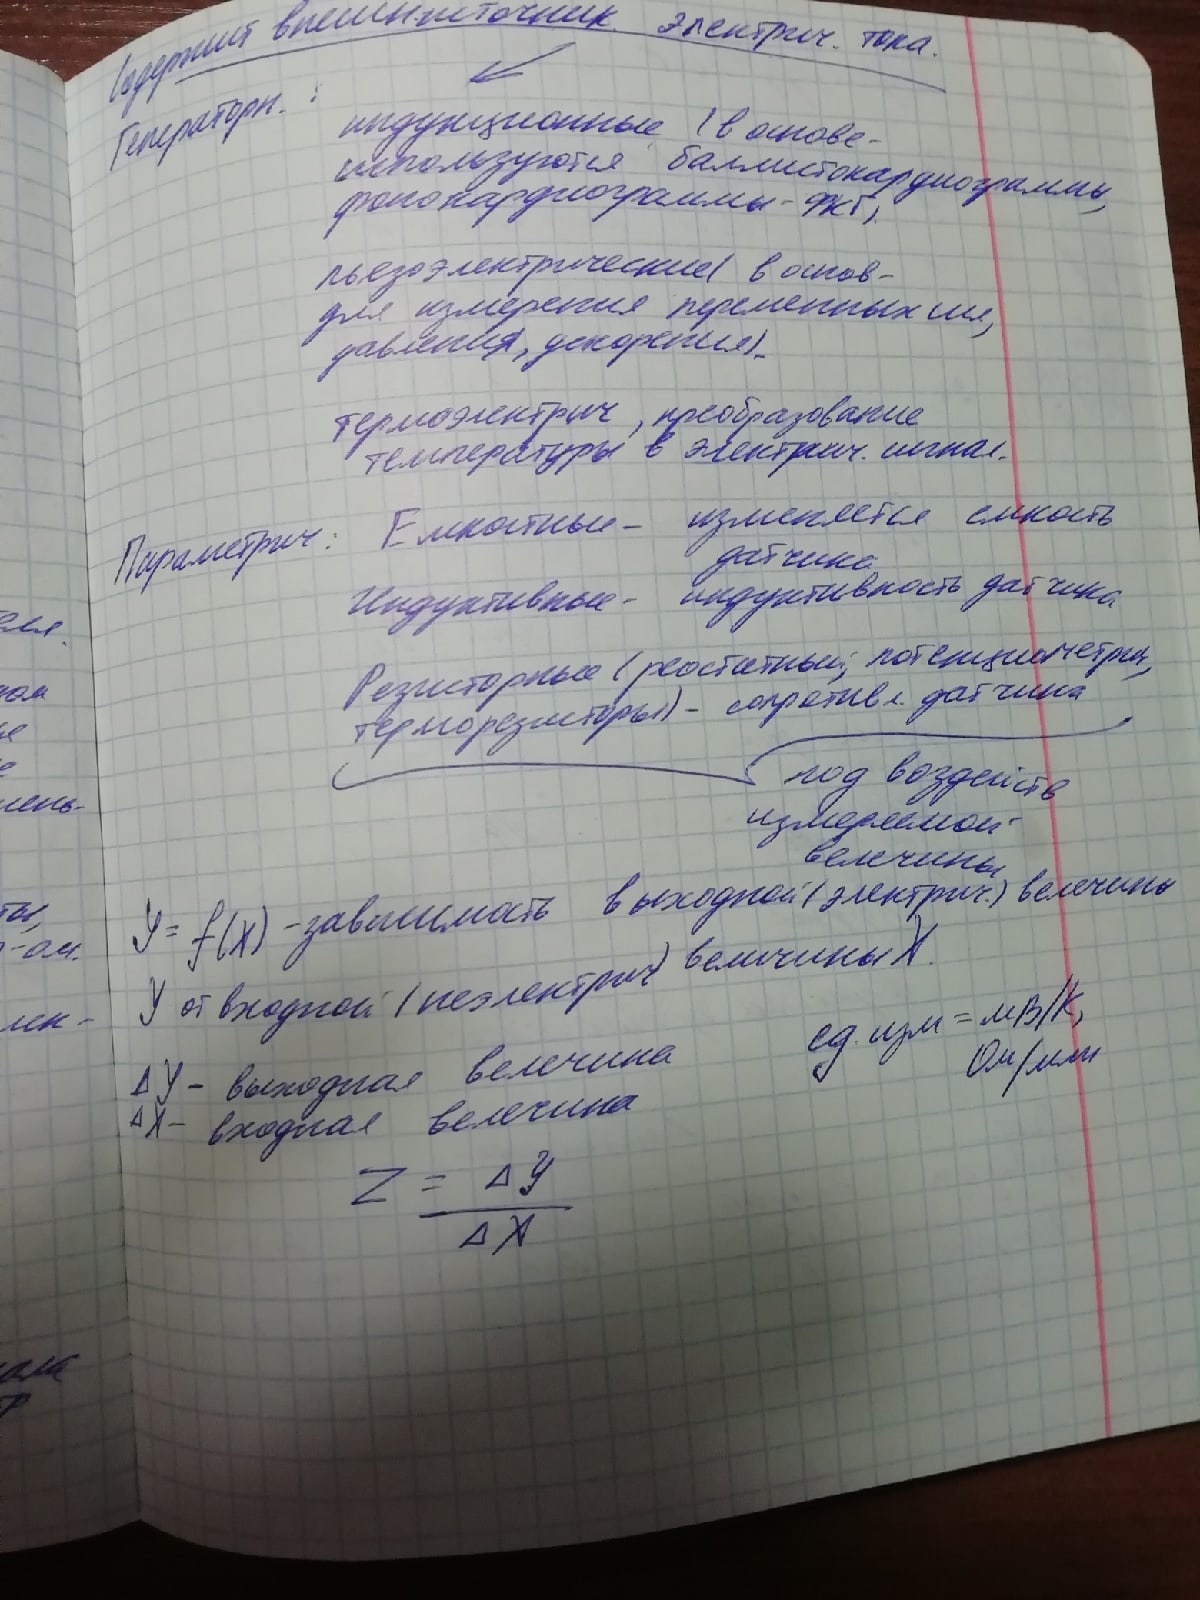 Содержит внешн. источник электрич. тока.
Генераторн. :
индукционные (в основе-
используются баллистокардиограммы,
фонокардиограммы - ФКГ),
пьезоэлектрические( в основ-
для измерения переменных сил,
давления, ускорения).
термоэлектрич, преобразование
температуры в электрич. сигнал.
Параметрич: Емкостные - изменяется емкость
датчика
Индуктивные - индуктивность датчика
Резисторные (реостатный, потенциометрич,
терморезисторы) - сопротивл. датчика
под воздейств
измеряемой
велечины
У = f(X) - зависимать выходной (электрич.) велечины
У от входной (неэлектрич) величины Х.
ед. изм = мВ/К,
Ом/мм
ΔУ - выходная велечина
ΔХ - входная велечина
Z = ΔУ
ΔХ
еля.
ие
мень-
ты,
ом.
лек-
ала
тр